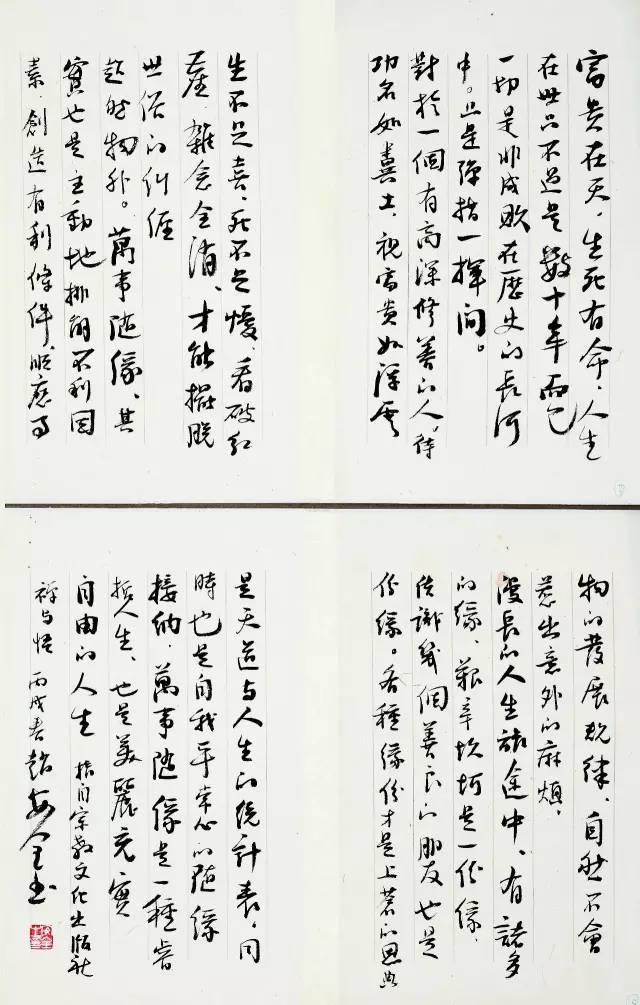 富貴在天，生死有命，人生
在世只不過是數十年而已
一切是非成敗在歷史的長河
中。只是彈指一揮間。
對於一個有高深修養的人，待
功名如糞土，視富貴如浮雲
生不足喜，死不足憂，看破紅
塵，雜念全消，才能擺脫
世俗的糾纏
超然物外。萬事隨緣，其
實也是主動地排解不利因
素，創造有利條件，順應事
物的發展規律，自然不會
惹出意外的麻煩，
漫長的人生旅途中，有諸多
的緣，艱辛坎坷是一份緣，
結識幾個善良的朋友也是
份緣。各種緣份才是上蒼的恩典
是天道与人生的統計表，同
時也是自我平常心的隨緣
接納，萬事隨緣是一種睿
哲人生，也是美麗充實
自由的人生 摘自宗教文化出版社
禅与悟 丙戌春趙安全书